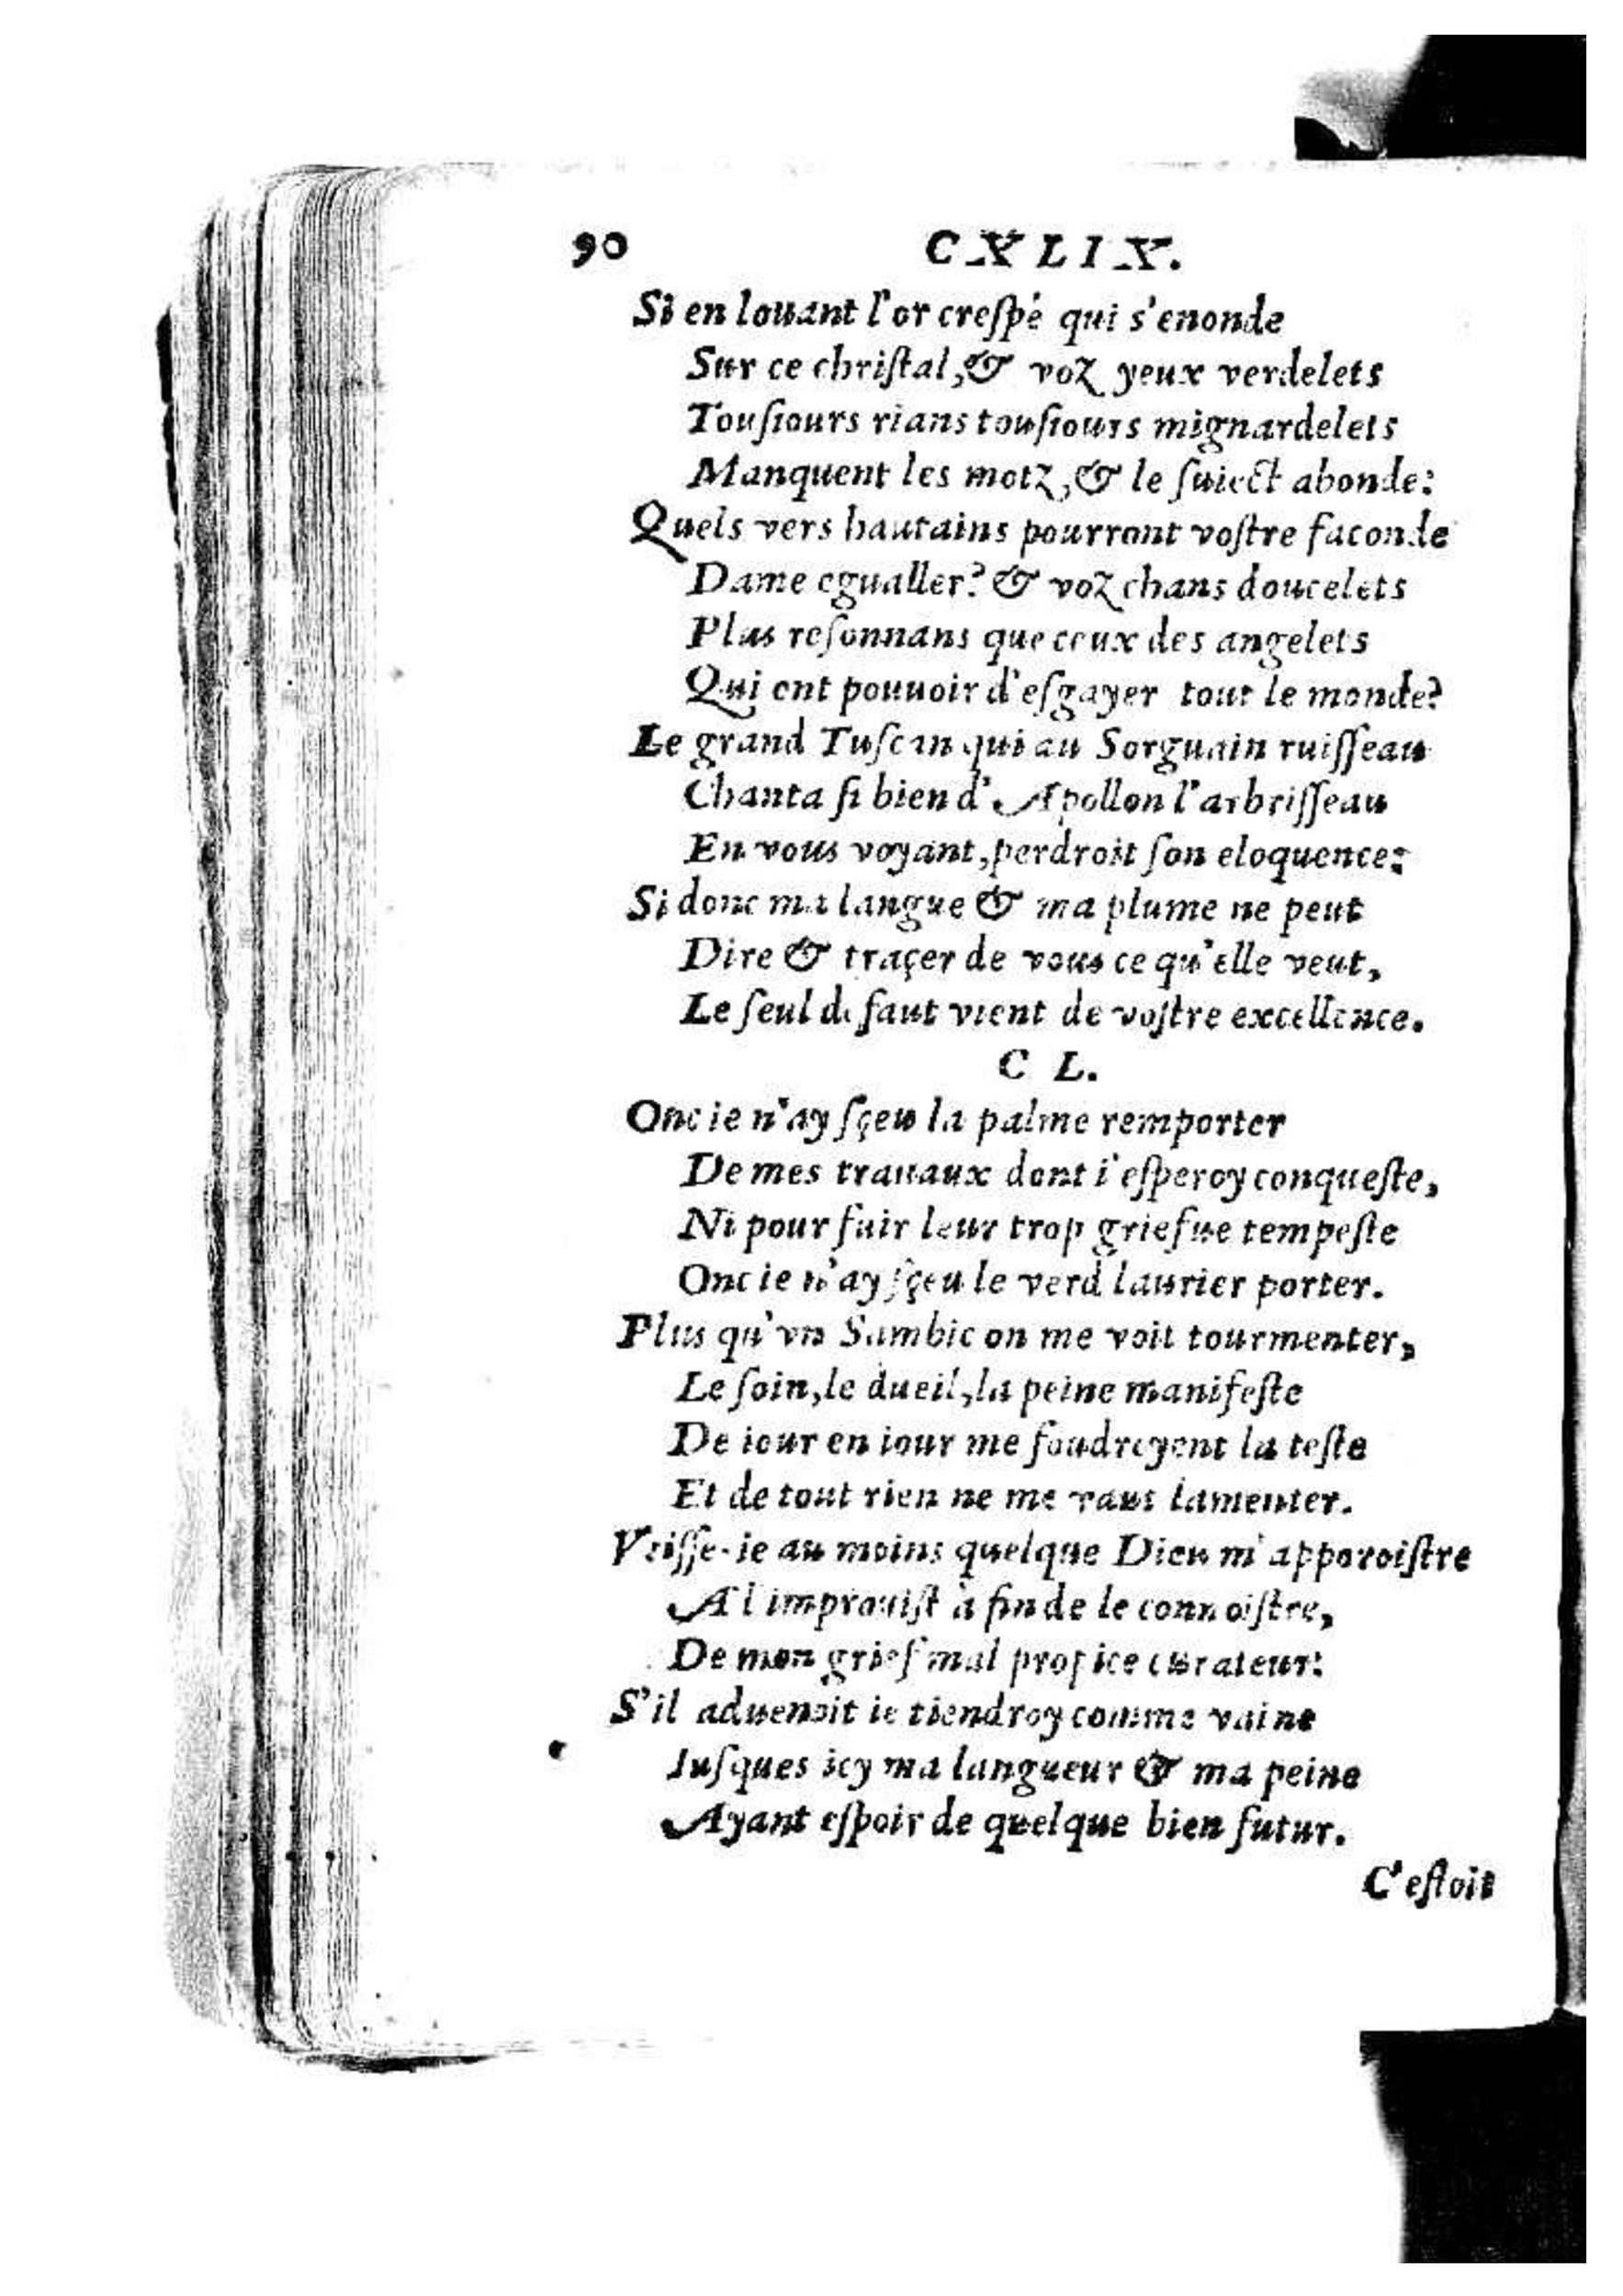 90 CXLIX.
Si en louant l'or creſpé qui s'enonde
Sur ce chriſtal, & voz yeux verdelets
Touſiours rians touſiours mignardelets
Manquent les motz, & le ſuiect abonde:
Quels vers hautains pourront voſtre faconde
Dame egualler? & voz chans doucelets
Plus reſonnans que ceux des angelets
Qui ont pouuoir d'eſgayer tout le monde?
Le grand Tuſcan qui au Sorguain ruiſſeau
Chanta ſi bien d'Apollon l'arbriſſeau
En vous voyant, perdroit ſon eloquence:
Si donc ma langue & ma plume ne peut
Dire & traçer de vous ce qu'elle veut,
Le ſeul defaut vient de voſtre excellence.
C L.
Onc ie n'ay ſçeu la palme remporter
De mes trauaux dont i'eſperoy conqueſte,
Ni pour fuir leur trop griefue tempeſte
Onc ie n'ay ſçeu le verd laurier porter.
Plus qu'vn Sambic on me voit tourmenter,
Le ſoin, le dueil, la peine manifeſte
De iour en iour me foudroyent la teſte
Et de tout rien ne me vaut lamenter.
Veiſſe-ie au moins quelque Dieu m'apparoiſtre
A l'improuiſt à fin de le connoiſtre,
De mon grief mal propice curateur:
S'il aduenoit ie tiendroy comme vaine
Iuſques icy ma langueur & ma peine
Ayant eſpoir de quelque bien futur.
C'eſtoit